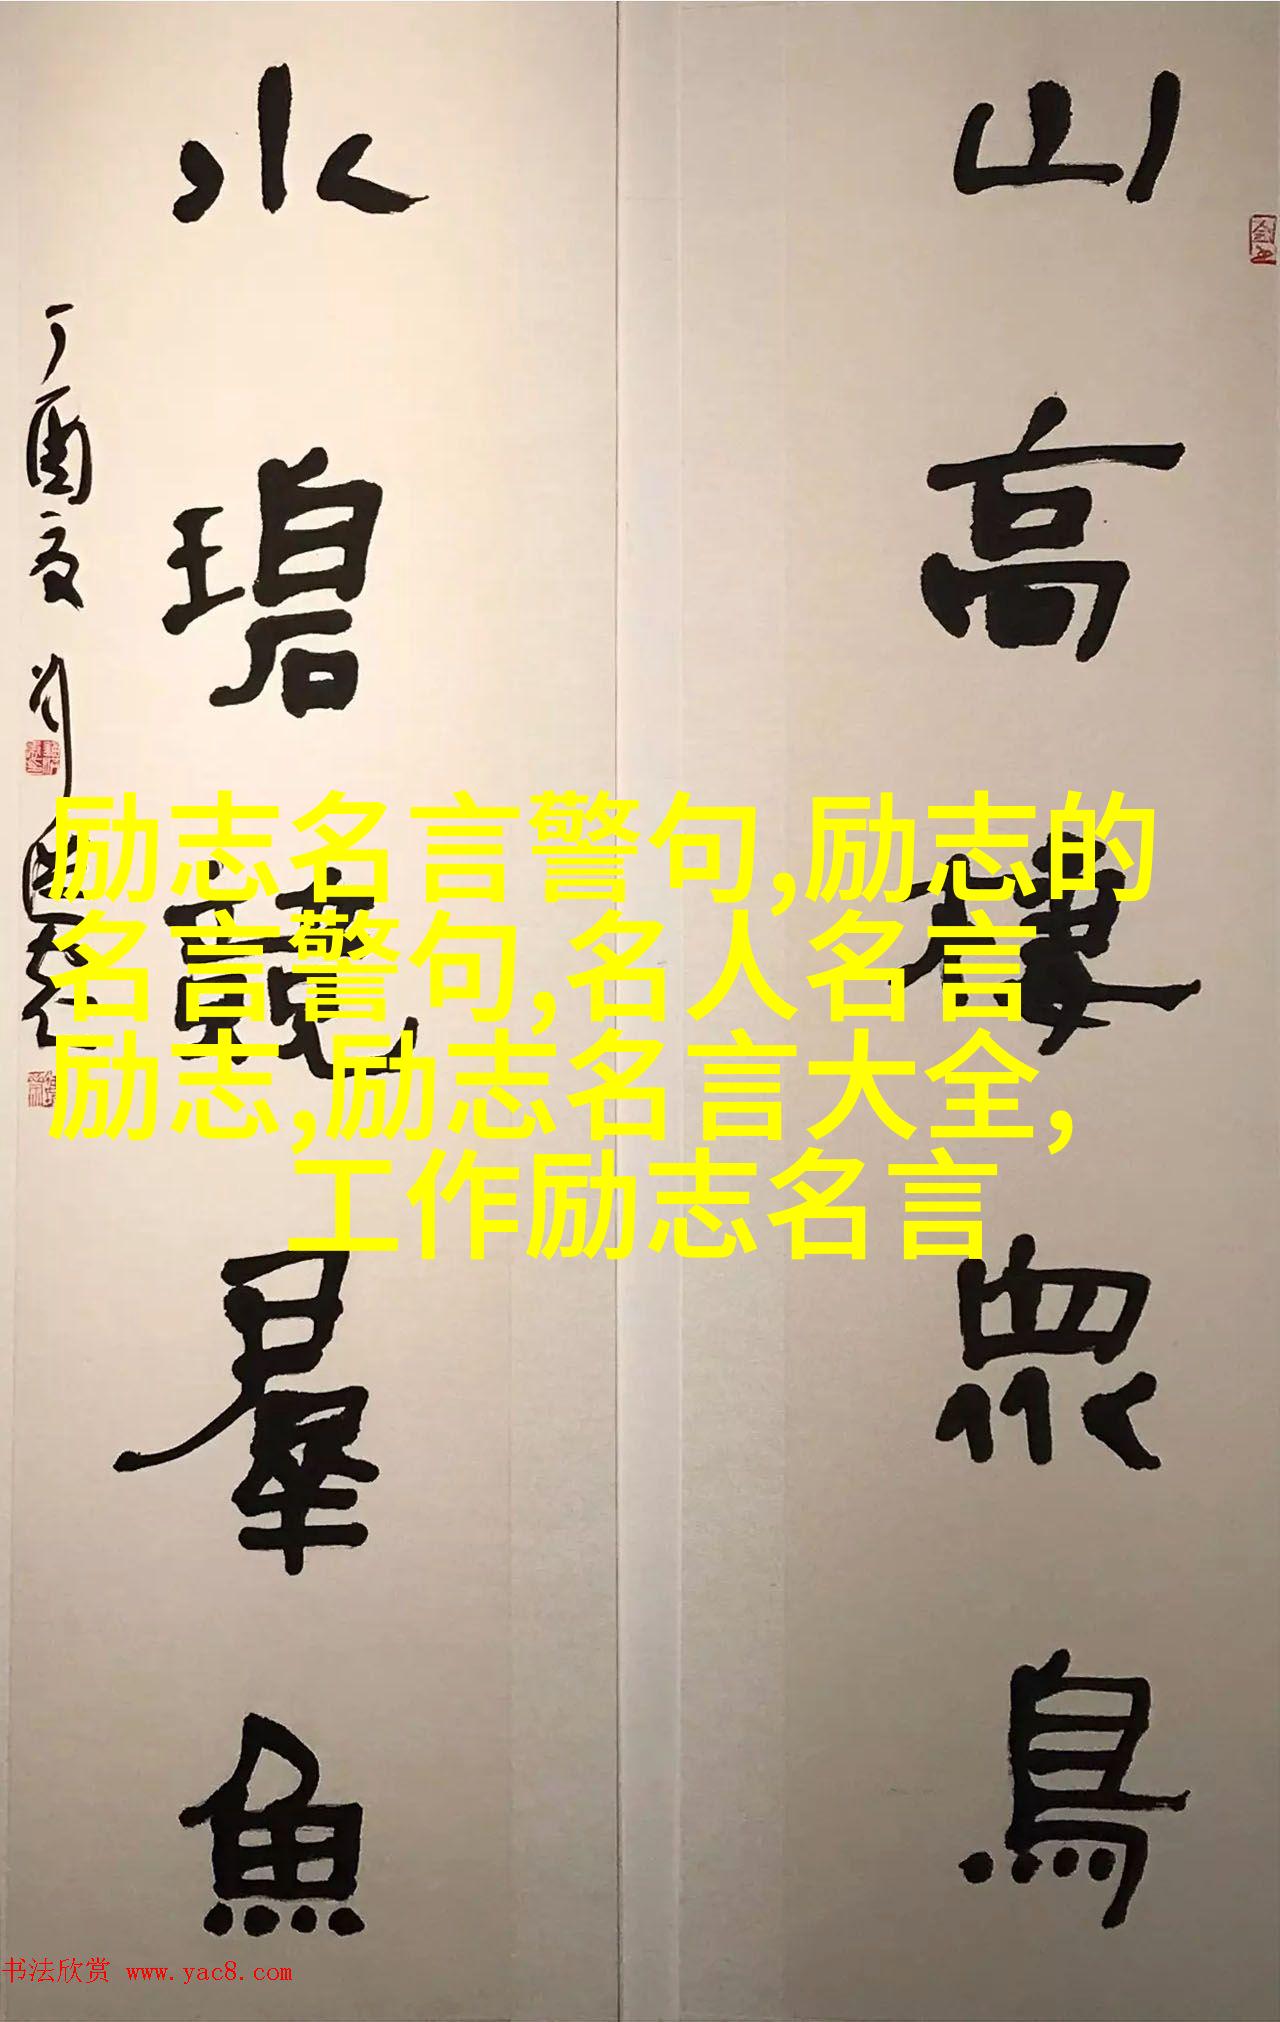 山高棲眾鳥
水碧競羣魚
丁酉夏
励志名言警句,励志的
名言警句,名人名言
励志,励志名言大全,
工作励志名言
书法欣赏 www.yac8.com